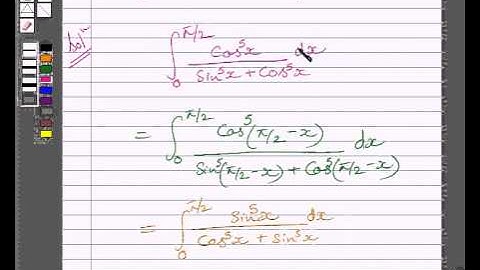 Solⁿ
∫₀^π/2 Cos⁵x / Sin⁵x + Cos⁵x dx
= ∫₀^π/2 Cos⁵(π/2 - x) / Sin⁵(π/2 - x) + Cos⁵(π/2 - x) dx
= ∫₀^π/2 Sin⁵x / Cos⁵x + Sin⁵x dx